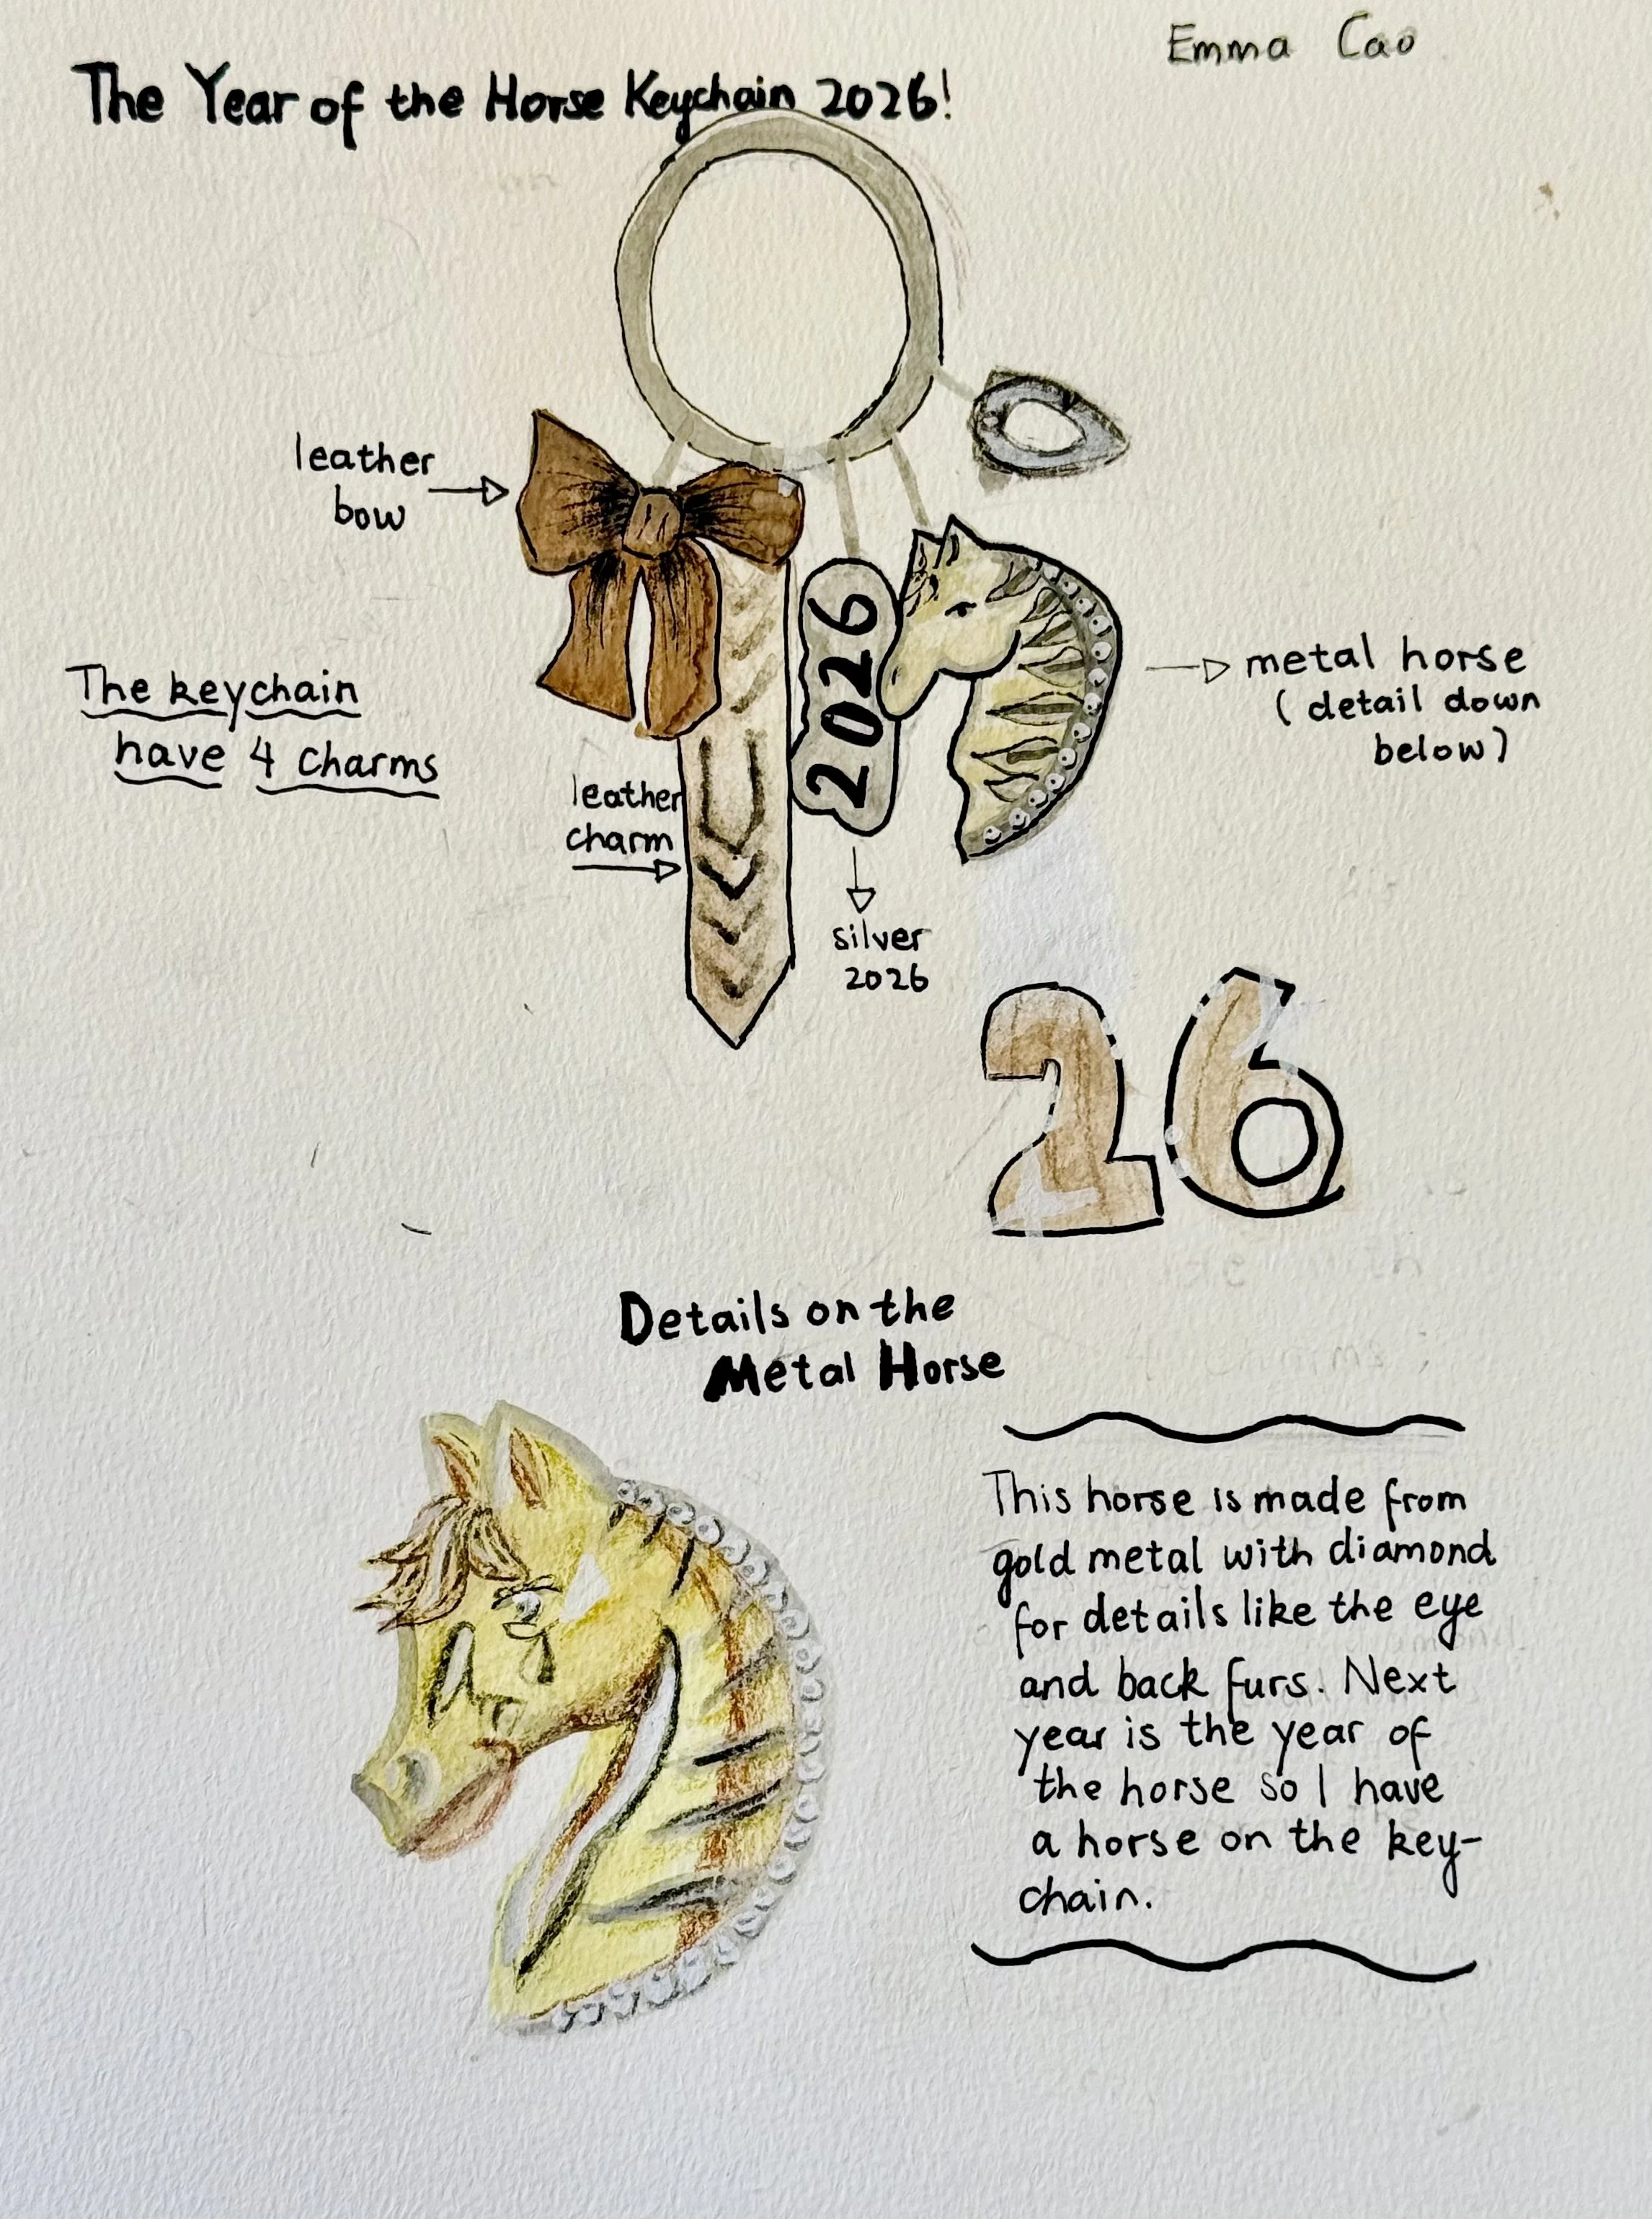 Emma Cao
The Year of the Horse Keychain 2026!
leather
bow
2026
metal horse
(detail down
below)
The keychain
have 4 charms
leather
charm
silver
2026
26
Details on the
Metal Horse
This horse is made from
gold metal with diamond
for details like the eye
and back furs. Next
year is the year of
the horse so I have
a horse on the key-
chain.